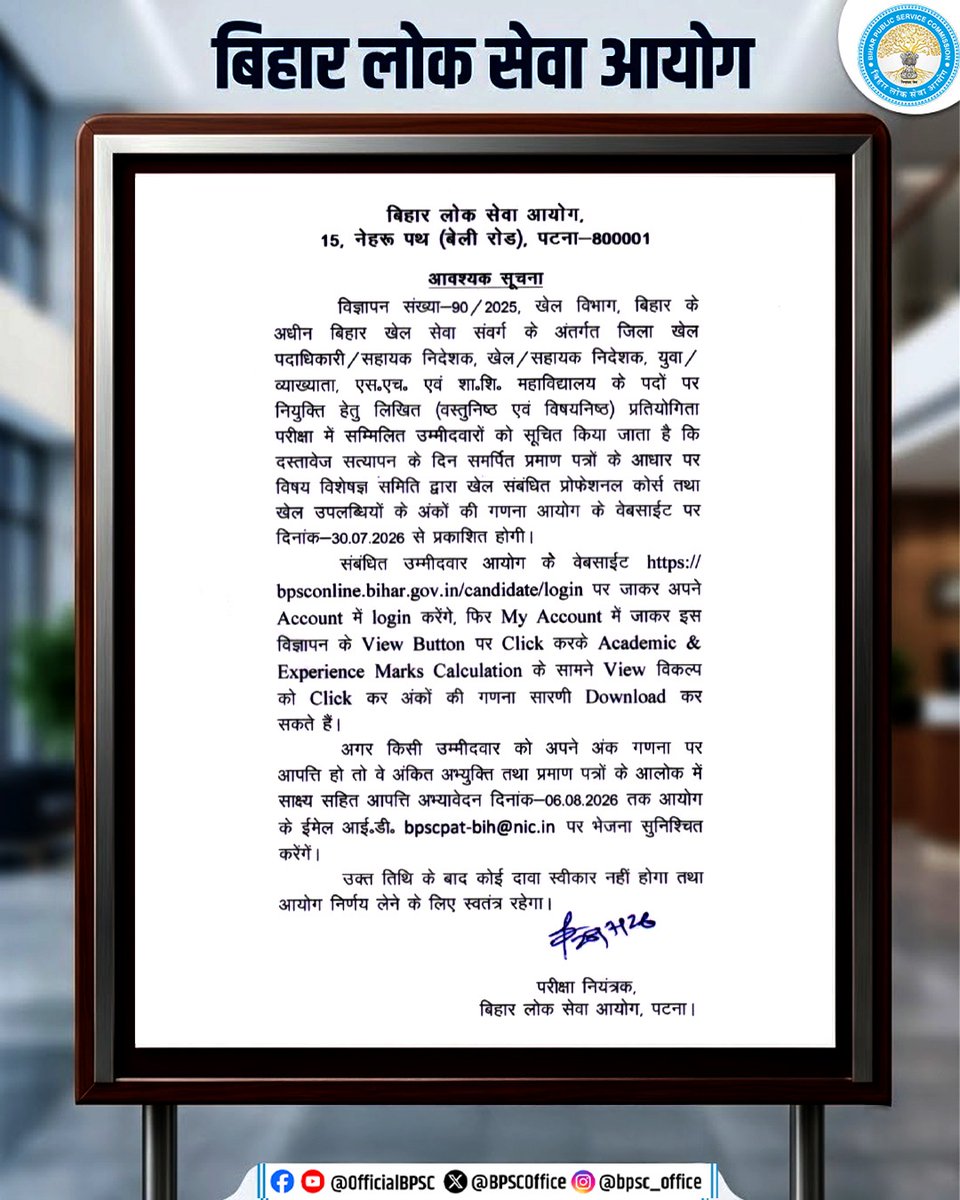 बिहार लोक सेवा आयोग
BIHAR PUBLIC SERVICE COMMISSION
बिहार लोक सेवा आयोग
बिहार लोक सेवा आयोग,
15, नेहरू पथ (बेली रोड), पटना–800001
आवश्यक सूचना
विज्ञापन संख्या–90/2025, खेल विभाग, बिहार के
अधीन बिहार खेल सेवा संवर्ग के अंतर्गत जिला खेल
पदाधिकारी/सहायक निदेशक, खेल/सहायक निदेशक, युवा/
व्याख्याता, एस.एच. एवं शा.शि. महाविद्यालय के पदों पर
नियुक्ति हेतु लिखित (वस्तुनिष्ठ एवं विषयनिष्ठ) प्रतियोगिता
परीक्षा में सम्मिलित उम्मीदवारों को सूचित किया जाता है कि
दस्तावेज सत्यापन के दिन समर्पित प्रमाण पत्रों के आधार पर
विषय विशेषज्ञ समिति द्वारा खेल संबंधित प्रोफेशनल कोर्स तथा
खेल उपलब्धियों के अंकों की गणना आयोग के वेबसाईट पर
दिनांक–30.07.2026 से प्रकाशित होगी।
संबंधित उम्मीदवार आयोग के वेबसाईट https://
bpsconline.bihar.gov.in/candidate/login पर जाकर अपने
Account में login करेंगे, फिर My Account में जाकर इस
विज्ञापन के View Button पर Click करके Academic &
Experience Marks Calculation के सामने View विकल्प
को Click कर अंकों की गणना सारणी Download कर
सकते हैं।
अगर किसी उम्मीदवार को अपने अंक गणना पर
आपत्ति हो तो वे अंकित अभ्युक्ति तथा प्रमाण पत्रों के आलोक में
साक्ष्य सहित आपत्ति अभ्यावेदन दिनांक–06.08.2026 तक आयोग
के ईमेल आई.डी. bpscpat-bih@nic.in पर भेजना सुनिश्चित
करेंगें।
उक्त तिथि के बाद कोई दावा स्वीकार नहीं होगा तथा
आयोग निर्णय लेने के लिए स्वतंत्र रहेगा।
परीक्षा नियंत्रक,
बिहार लोक सेवा आयोग, पटना।
@OfficialBPSC @BPSCOffice @bpsc_office